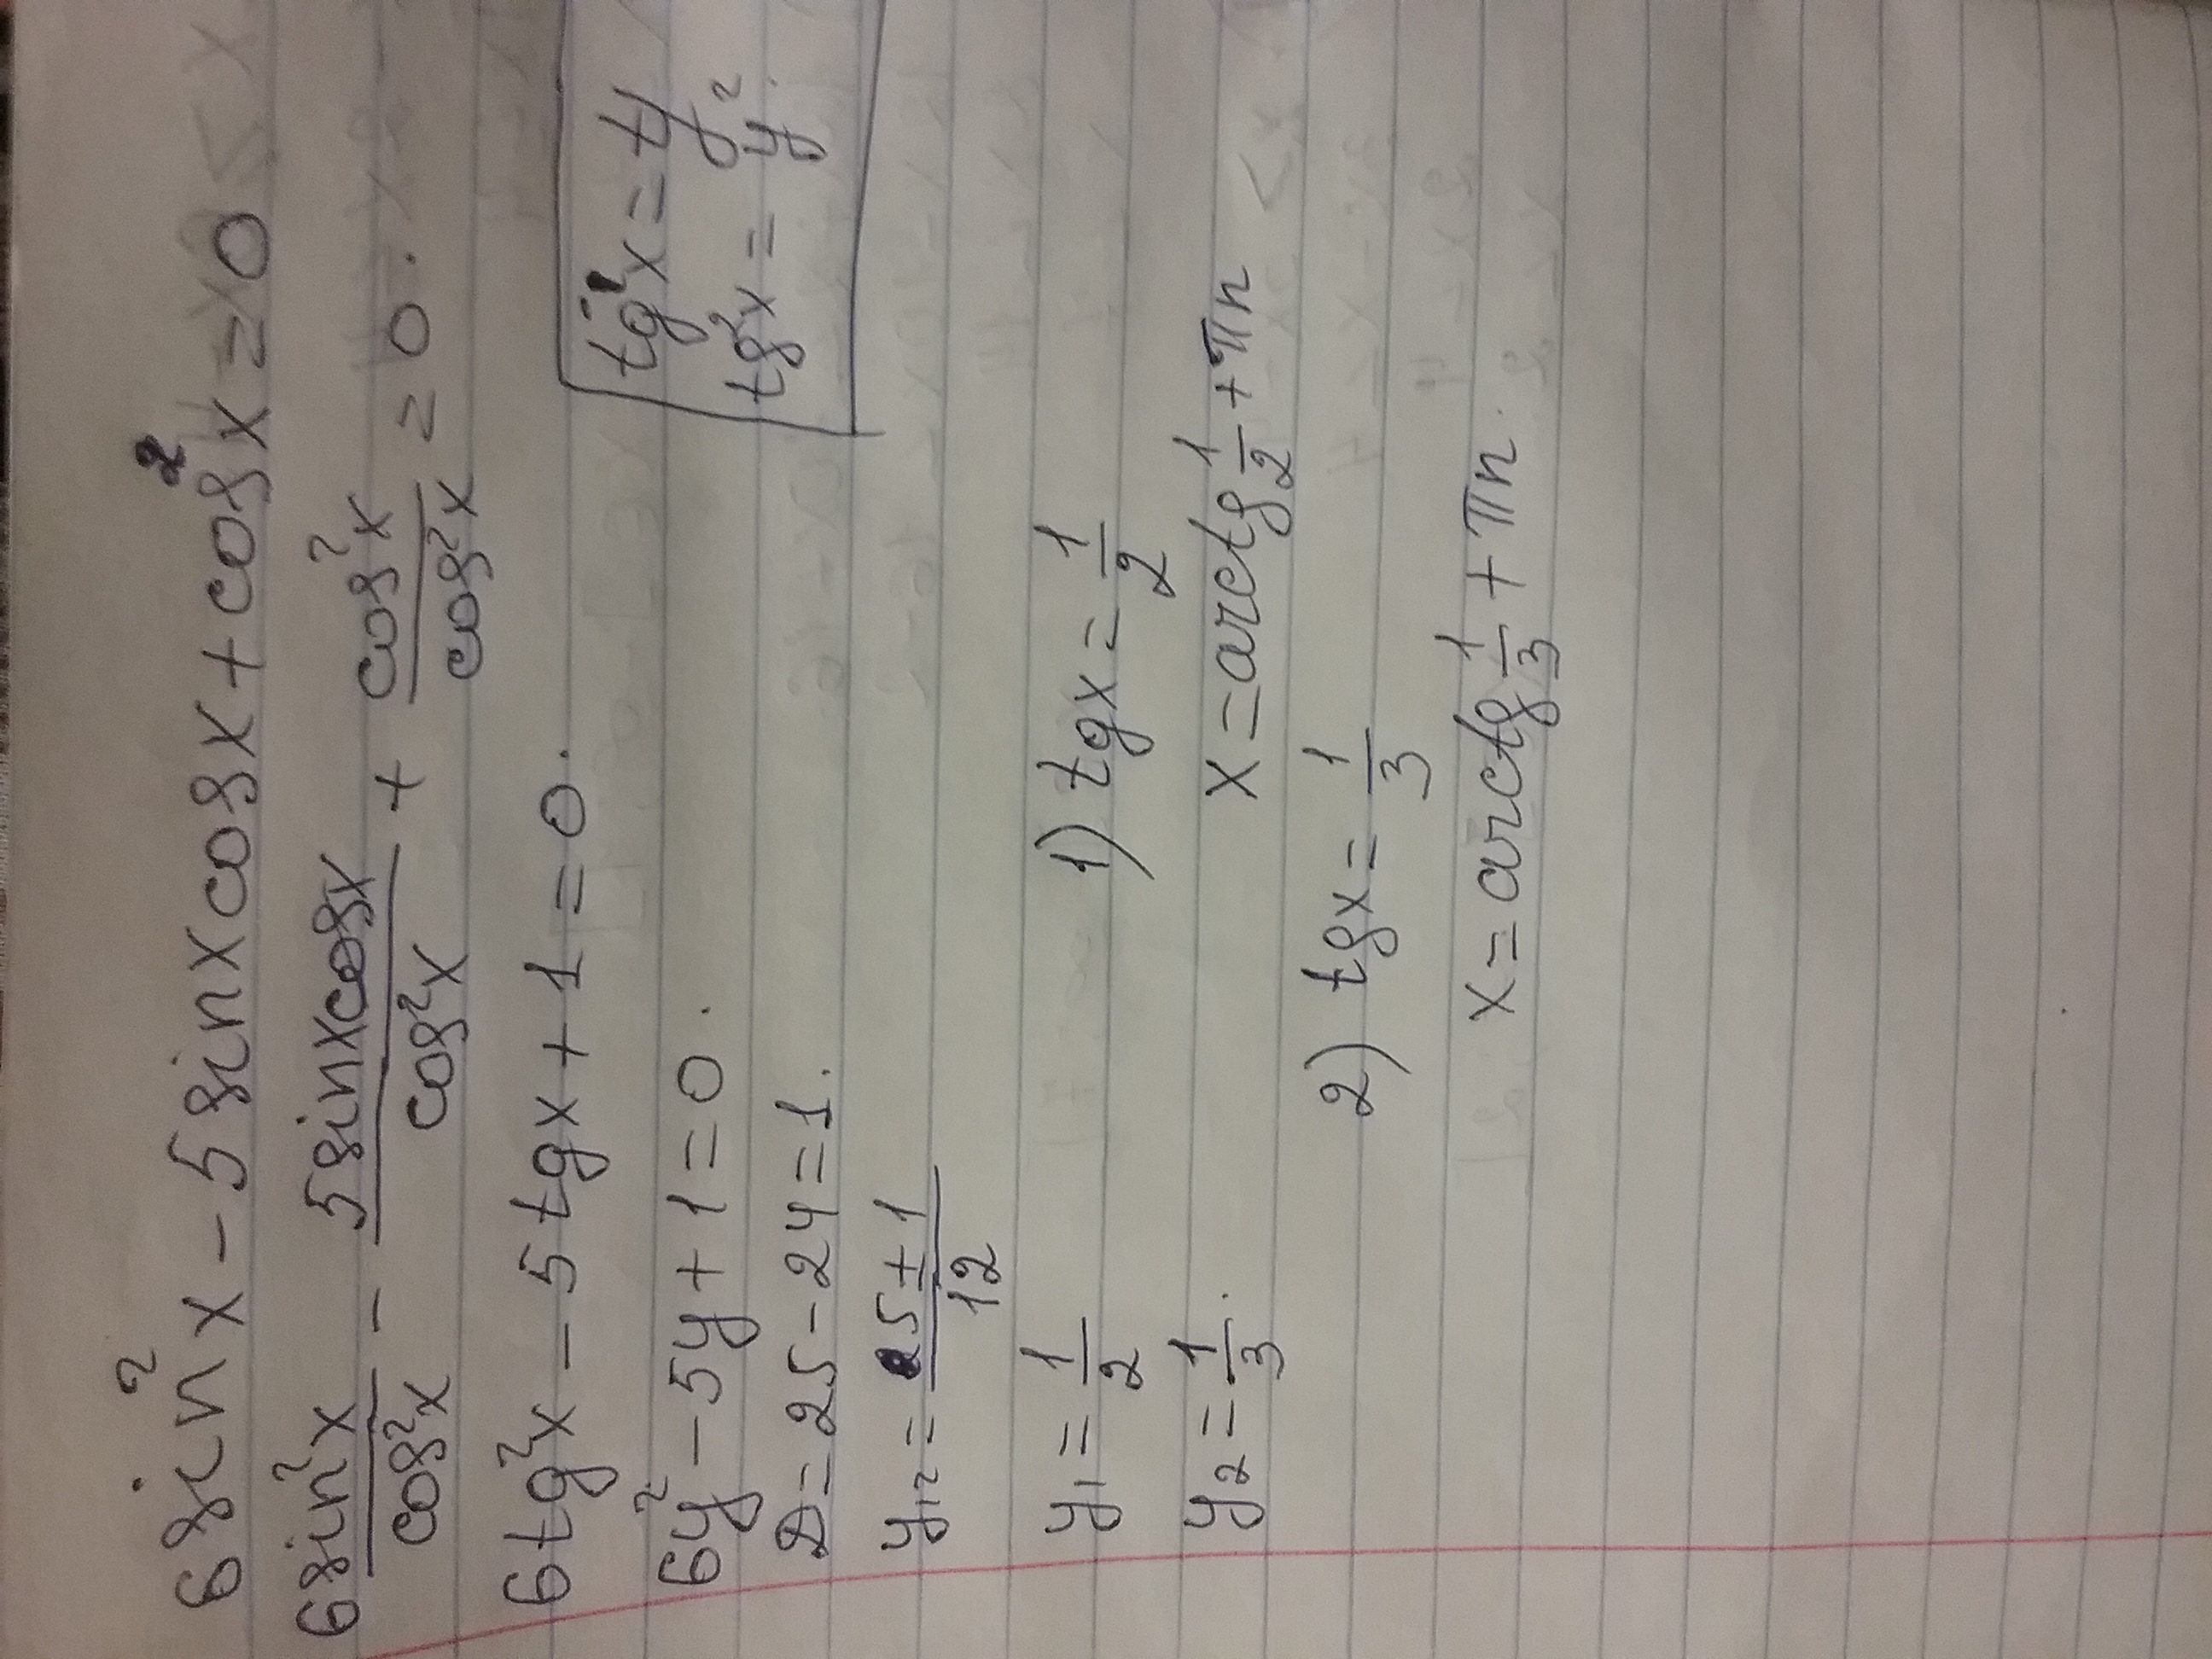 6sin²x - 5sinxcosx + cos²x = 0
6sin²x/cos²x - 5sinxcosx/cos²x + cos²x/cos²x = 0.
6tg²x - 5tgx + 1 = 0.
tgx = y
tg²x = y².
6y² - 5y + 1 = 0.
D = 25 - 24 = 1.
y₁₂ = 5 ± 1/12
y₁ = 1/2
y₂ = 1/3.
1) tgx = 1/2
x = arctg 1/2 + πn
2) tgx = 1/3
x = arctg 1/3 + πn.